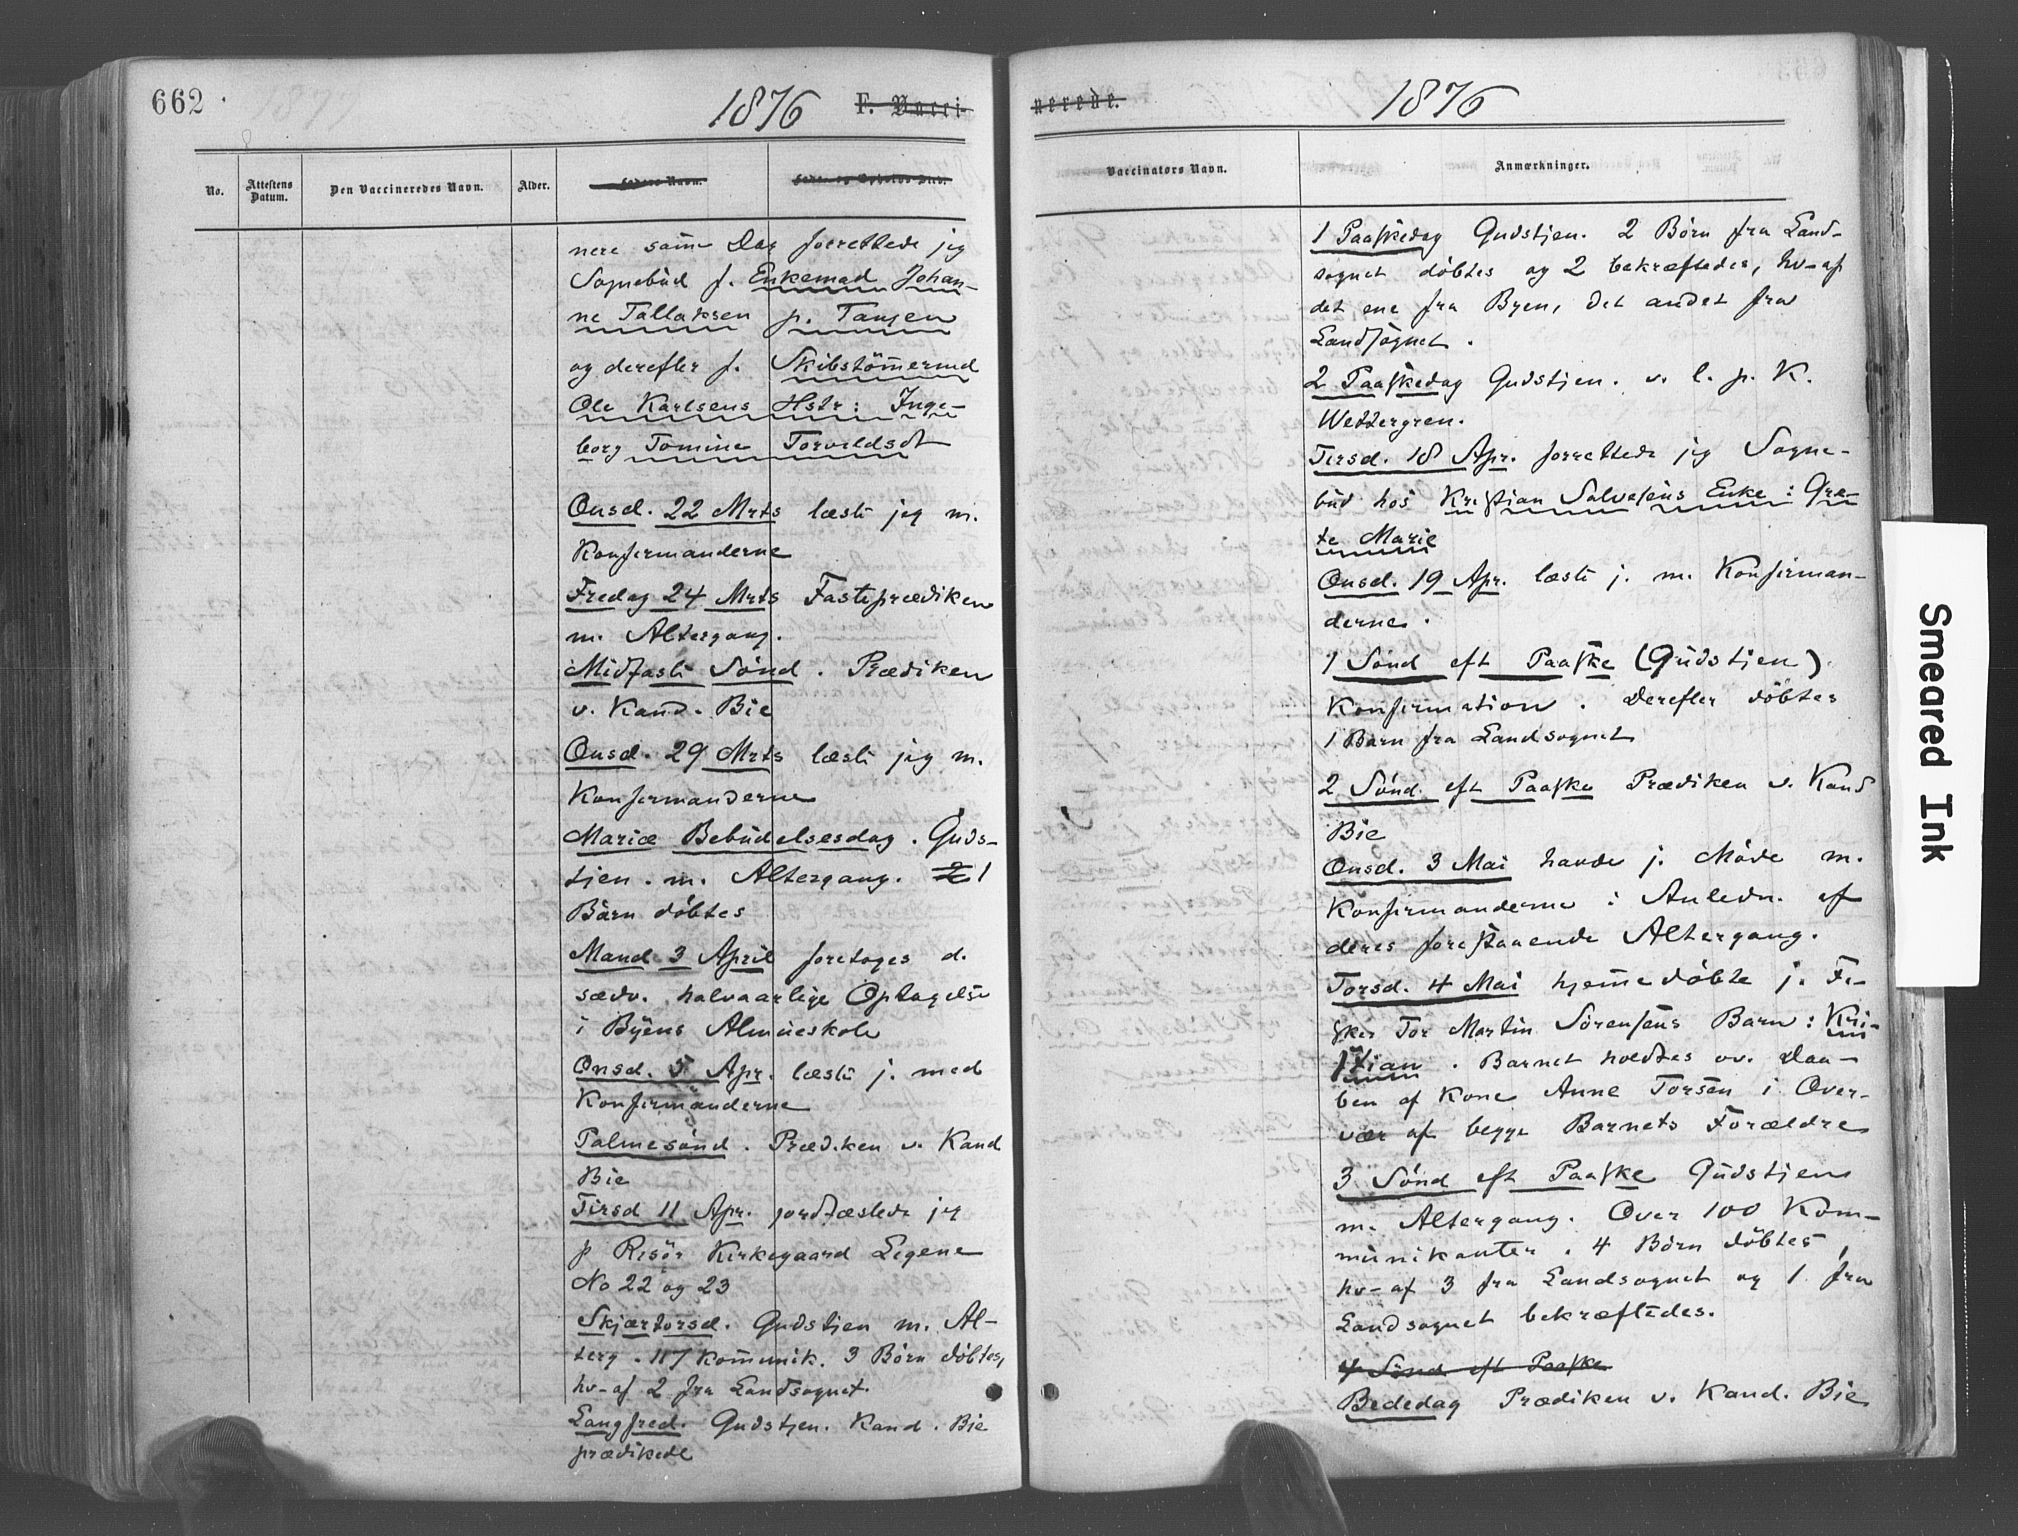 662
1876 F. Vacci-
No. Attestens Datum. Den Vaccineredes Navn. Alder. Faders Navn.
nere samme Dag forrettede jeg
Sognebud f. Enkemad Johan-
ne Tallaksen p. Tangen
og derefter f. Skibstömermd
Ole Karlsens Hstr: Inge-
borg Tomine Torvaldsdt
Onsd. 22 Mrts læste jeg m.
Konfirmanderne
Fredag 24 Mrts Fasteprædiken
m. Altergang.
Midfaste Sönd. Prædiken
v. Kand. Bie
Onsd. 29 Mrts læste jeg m.
Konfirmanderne
Mariæ Bebudelsesdag. Guds-
tjen. m. Altergang. 2 1
Barn döbtes
Mand 3 April foretoges d.
sædv. halvaarlige Optagelse
i Byens Almueskole
Onsd. 5 Apr. læste j. med
Konfirmanderne
Palmesönd. Prædiken v. Kand
Bie
Tirsd 11 Apr. jordfæstede jeg
p Risör Kirkegaard Ligene
No 22 og 23
Skjærtorsd. Gudstjen m. Al-
terg. 117 Kommunik. 3 Börn döbtes,
hv-af 2 fra Landsognet.
Langfred. Gudstjen. Kand. Bie
prædikede
nerede. 1876
Vaccinatørs Navn. Anmærkninger.
1 Paaskedag Gudstjen. 2 Börn fra Land-
sognet döbtes og 2 bekræftedes, hv-af
det ene fra Byen, det andet fra
Landsognet.
2 Paaskedag Gudstjen. v. l. p. K.
Wettergren.
Tirsd. 18 Apr. forrettede jeg Sogne-
bud hos Kristian Salvesens Enke: Gre-
te Marie
Onsd. 19 Apr. læste j. m. Konfirman-
derne.
1 Sönd eft Paaske (Gudstjen)
Konfirmation. Derefter döbtes
1 Barn fra Landsognet
2 Sönd. eft Paaske Prædiken v. Kand
Bie
Onsd. 3 Mai havde j. Möde m.
Konfirmanderne i Anledn. af
deres forestaaende Altergang.
Torsd. 4 Mai hjemmedöbte j. Fi-
sker Tor Martin Sörensens Barn: Kri-
stian. Barnet holdtes ov. Daa-
ben af Kone Anne Torsen i Over-
vær af begge Barnets Forældre
3 Sönd eft Paaske Gudstjen
m. Altergang. Over 100 Kom-
munikanter. 4 Börn döbtes,
hv-af 3 fra Landsognet og 1 fra
Landsognet bekræftedes.
4 Sönd eft Paaske
Bededag Prædiken v. Kand. Bie
Smeared Ink